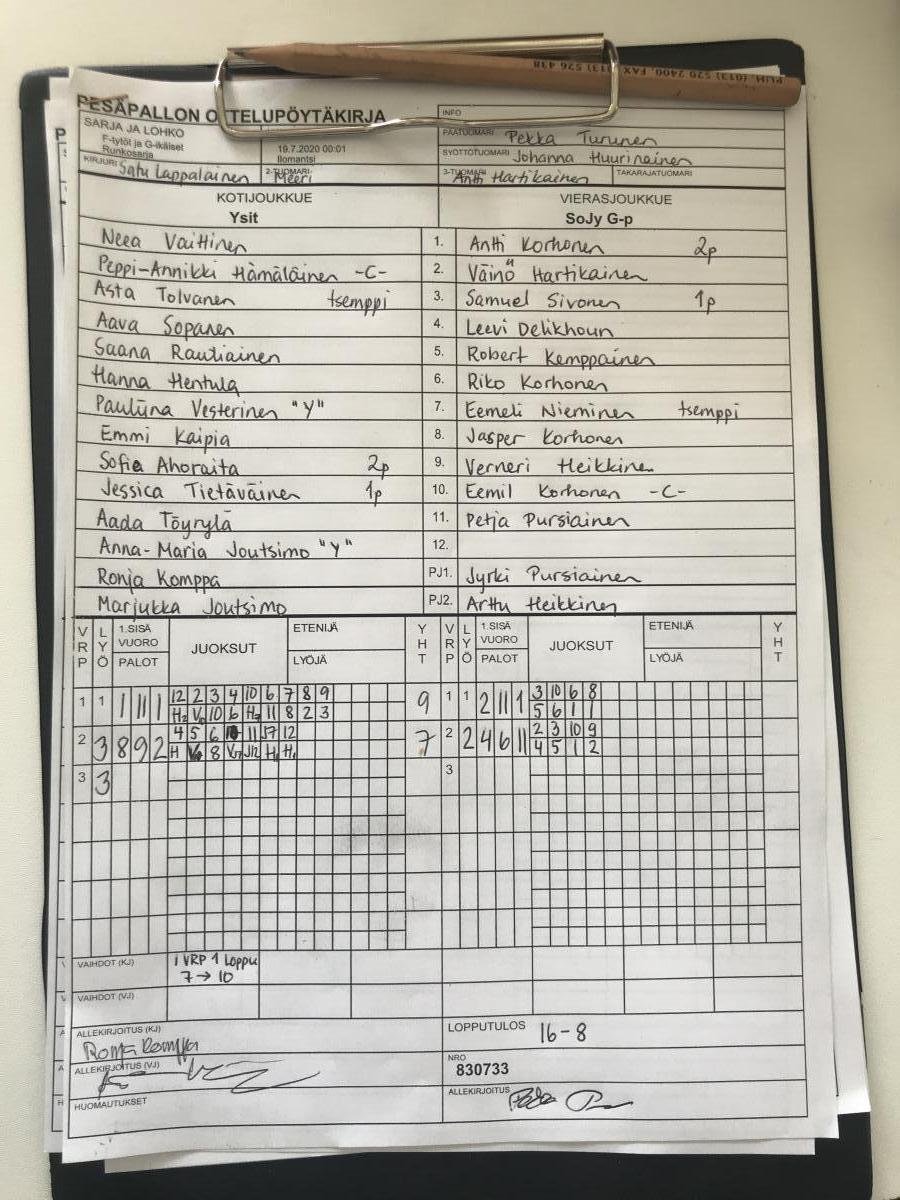 PUH. (013) 520 2400, FAX (013) 526 438
PESÄPALLON OTTELUPÖYTÄKIRJA
INFO
SARJA JA LOHKO
F-tytöt ja G-ikäiset
Runkosarja
19.7.2020 00:01
Ilomantsi
PÄÄTUOMARI Pekka Turunen
SYÖTTÖTUOMARI Johanna Huurinainen
KIRJURI Satu Lappalainen
2-TUOMARI Meeri
3-TUOMARI Antti Hartikainen
TAKARAJATUOMARI
KOTIJOUKKUE
Ysit
VIERASJOUKKUE
SoJy G-p
Neea Vaittinen 1. Antti Korhonen 2p
Peppi-Annikki Hämäläinen -C- 2. Väinö Hartikainen
Asta Tolvanen tsemppi 3. Samuel Sivonen 1p
Aava Sopanen 4. Leevi Delikhoun
Saana Rautiainen 5. Robert Kemppainen
Hanna Hentula 6. Riko Korhonen
Pauliina Vesterinen "Y" 7. Eemeli Nieminen tsemppi
Emmi Kaipia 8. Jasper Korhonen
Sofia Ahoraita 2p 9. Verneri Heikkinen
Jessica Tietäväinen 1p 10. Eemil Korhonen -C-
Aada Töyrylä 11. Petja Pursiainen
Anna-Maria Joutsimo "Y" 12.
Ronja Komppa PJ1. Jyrki Pursiainen
Marjukka Joutsimo PJ2. Arttu Heikkinen
VRP LYÖ 1.SISÄ VUORO PALOT JUOKSUT ETENIJÄ LYÖJÄ YHT VRP LYÖ 1.SISÄ VUORO PALOT JUOKSUT ETENIJÄ LYÖJÄ YHT
1 1 1 11 1 12 2 3 4 10 6 7 8 9 9 1 1 2 11 1 3 10 6 8
10 6 11 8 2 3 5 6 1 1
2 3 8 9 2 4 5 6 10 11 12 7 2 2 4 6 11 2 3 10 9
H 8 4 5 1 2
3 3 3
VAIHDOT (KJ) 1 VRP 1 Loppu
7 → 10
VAIHDOT (VJ)
ALLEKIRJOITUS (KJ)
Ronja Komppa
LOPPUTULOS 16-8
ALLEKIRJOITUS (VJ)
NRO
830733
HUOMAUTUKSET
ALLEKIRJOITUS